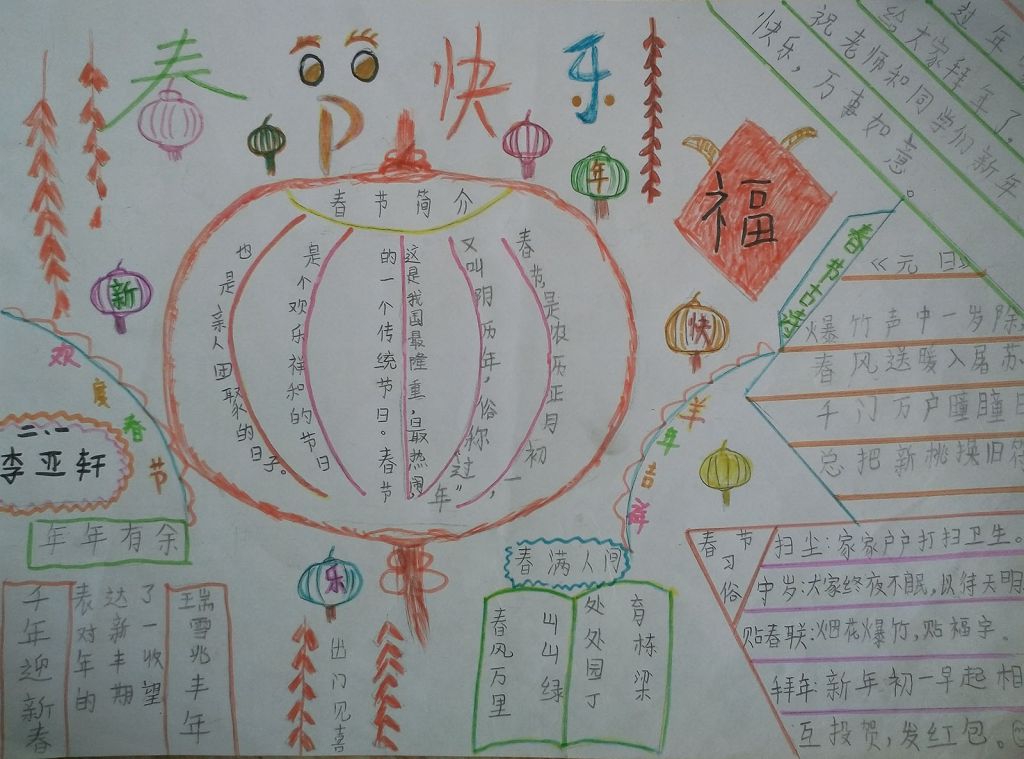 春节快乐
年
新
快
乐
福
过年
给大家拜年了。
祝老师和同学们新年
快乐,万事如意。
春节简介
春节,是农历正月初一,
又叫阴历年,俗称“过年”
这是我国最隆重,最热闹
的一个传统节日。春节
是个欢乐祥和的节日
也是亲人团聚的日子。
春节古诗
《元日》
爆竹声中一岁除
春风送暖入屠苏
千门万户瞳瞳日
总把新桃换旧符
欢度春节
二.一
李亚轩
年年有余
羊年吉祥
春节习俗
扫尘:家家户户打扫卫生。
中岁:大家终夜不眠,以待天明
贴春联:烟花爆竹,贴福字.
拜年:新年初一早起相
互投贺,发红包。
千年迎新春
表达了
对新一
年丰收
的期望
瑞雪兆丰年
出门见喜
春满人间
春风万里
山山绿
处处园丁
育栋梁